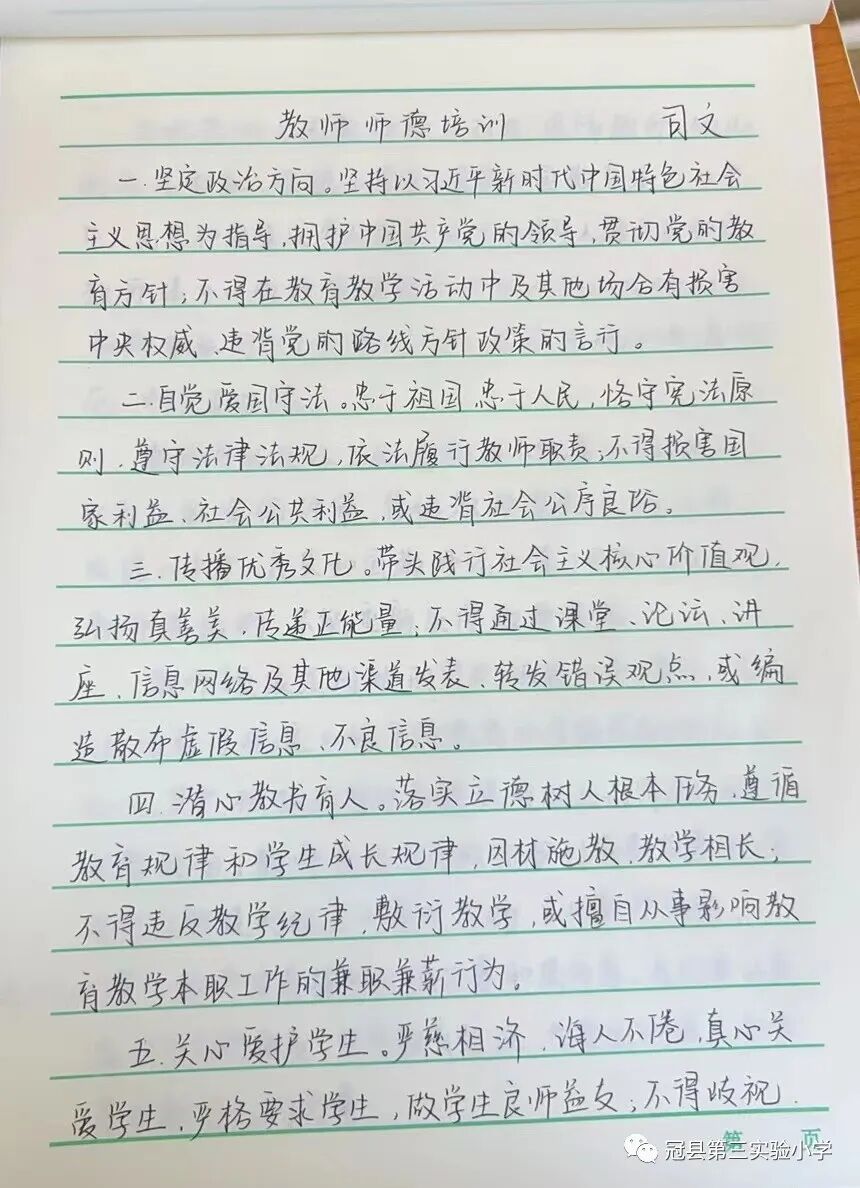 教师师德培训 司文
一.坚定政治方向。坚持以习近平新时代中国特色社会
主义思想为指导,拥护中国共产党的领导,贯彻党的教
育方针;不得在教育教学活动中及其他场合有损害
中央权威、违背党的路线方针政策的言行。
二.自觉爱国守法。忠于祖国,忠于人民,恪守宪法原
则,遵守法律法规,依法履行教师职责;不得损害国
家利益、社会公共利益,或违背社会公序良俗。
三.传播优秀文化。带头践行社会主义核心价值观,
弘扬真善美,传递正能量;不得通过课堂、论坛、讲
座、信息网络及其他渠道发表、转发错误观点,或编
造散布虚假信息、不良信息。
四.潜心教书育人。落实立德树人根本任务,遵循
教育规律和学生成长规律,因材施教,教学相长;
不得违反教学纪律,敷衍教学,或擅自从事影响教
育教学本职工作的兼职兼薪行为。
五.关心爱护学生。严慈相济,诲人不倦,真心关
爱学生,严格要求学生,做学生良师益友;不得歧视、
第 页
冠县第三实验小学